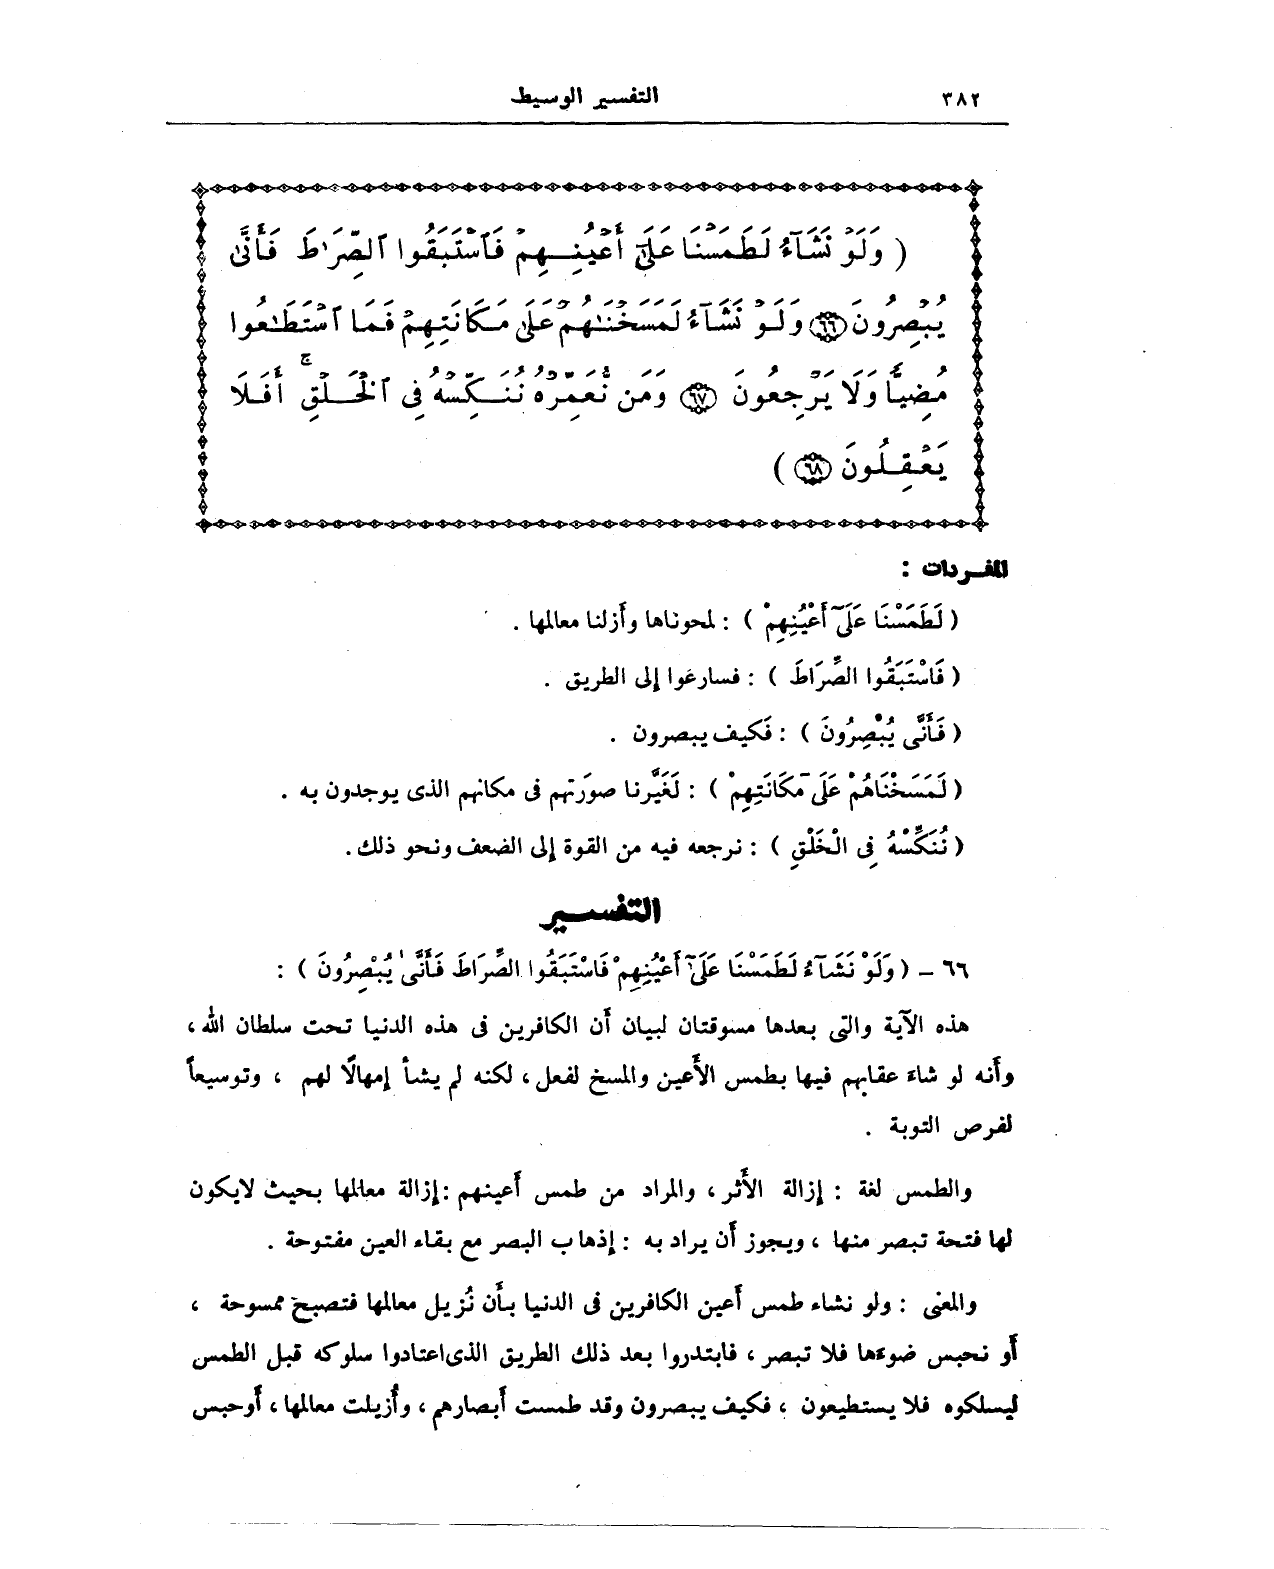 ٣٨٢
التفسير الوسيط
( وَلَوْ نَشَآءُ لَطَمَسْنَا عَلَىٰٓ أَعْيُنِهِمْ فَٱسْتَبَقُوا ٱلصِّرَٰطَ فَأَنَّىٰ
يُبْصِرُونَ ٦٦ وَلَوْ نَشَآءُ لَمَسَخْنَٰهُمْ عَلَىٰ مَكَانَتِهِمْ فَمَا ٱسْتَطَٰعُوا
مُضِيًّا وَلَا يَرْجِعُونَ ٦٧ وَمَن نُّعَمِّرْهُ نُنَكِّسْهُ فِى ٱلْخَلْقِ ۚ أَفَلَا
يَعْقِلُونَ ٦٨ )
المفردات :
( لَطَمَسْنَا عَلَىٓ أَعْيُنِهِمْ ) : لمحوناها وأزلنا معالمها .
( فَاسْتَبَقُوا الصِّرَاطَ ) : فسارعوا إلى الطريق .
( فَأَنَّى يُبْصِرُونَ ) : فَكيف يبصرون .
( لَمَسَخْنَاهُمْ عَلَى مَكَانَتِهِمْ ) : لَغَيَّرنا صورَتهم فى مكانهم الذى يوجدون به .
( نُنَكِّسْهُ فِى الْخَلْقِ ) : نرجعه فيه من القوة إلى الضعف ونحو ذلك .
التفسير
٦٦ – ( وَلَوْ نَشَآءُ لَطَمَسْنَا عَلَىٰٓ أَعْيُنِهِمْ فَاسْتَبَقُوا الصِّرَاطَ فَأَنَّىٰ يُبْصِرُونَ ) :
هذه الآية والتى بعدها مسوقتان لبيان أن الكافرين فى هذه الدنيا تحت سلطان الله ،
وأنه لو شاء عقابهم فيها بطمس الأعين والمسخ لفعل ، لكنه لم يشأ إمهالًا لهم ، وتوسيعاً
لفرص التوبة .
والطمس لغة : إزالة الأثر ، والمراد من طمس أعينهم : إزالة معالمها بحيث لايكون
لها فتحة تبصر منها ، ويجوز أن يراد به : إذهاب البصر مع بقاء العين مفتوحة .
والمعنى : ولو نشاء طمس أعين الكافرين فى الدنيا بأن نُزيل معالمها فتصبح ممسوحة ،
أو نحبس ضوءها فلا تبصر ، فابتدروا بعد ذلك الطريق الذى اعتادوا سلوكه قبل الطمس
ليسلكوه فلا يستطيعون ، فكيف يبصرون وقد طمست أبصارهم ، وأُزيلت معالمها ، أوحبس